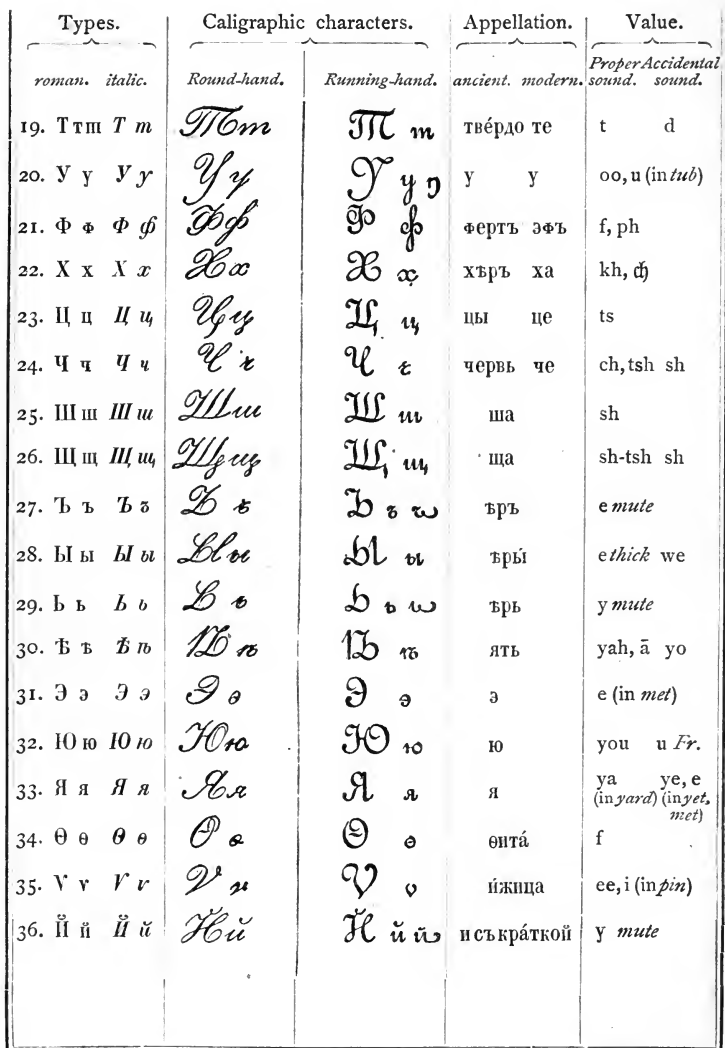 Types. Caligraphic characters. Appellation. Value.
roman. italic. Round-hand. Running-hand. ancient. modern. Proper sound. Accidental sound.
19. Т т ш Т т Т т Т т твéрдо те t d
20. У у У у У у У у у у у oo, u (in tub)
21. Ф ф Ф ф Ф ф Ф ф фертъ эфъ f, ph
22. Х х Х х Х х Х х хѣръ ха kh, ch
23. Ц ц Ц ц Ц ц Ц ц цы це ts
24. Ч ч Ч ч Ч ч Ч ч червь че ch, tsh sh
25. Ш ш Ш ш Ш ш Ш ш ша sh
26. Щ щ Щ щ Щ щ Щ щ ща sh-tsh sh
27. Ъ ъ Ъ ъ Ъ ъ Ъ ъ ѣръ e mute
28. Ы ы Ы ы Ы ы Ы ы ѣры́ e thick we
29. Ь ь Ь ь Ь ь Ь ь ѣрь y mute
30. Ѣ ѣ Ѣ ѣ Ѣ ѣ Ѣ ѣ ять yah, ā yo
31. Э э Э э Э э Э э э e (in met)
32. Ю ю Ю ю Ю ю Ю ю ю you u Fr.
33. Я я Я я Я я Я я я ya (in yard) ye, e (in yet, met)
34. Ѳ ѳ Ѳ ѳ Ѳ ѳ Ѳ ѳ ѳитá f
35. Ѵ ѵ Ѵ ѵ Ѵ ѵ Ѵ ѵ и́жица ee, i (in pin)
36. Й й Й й Й й Й й й и съ крáткой y mute